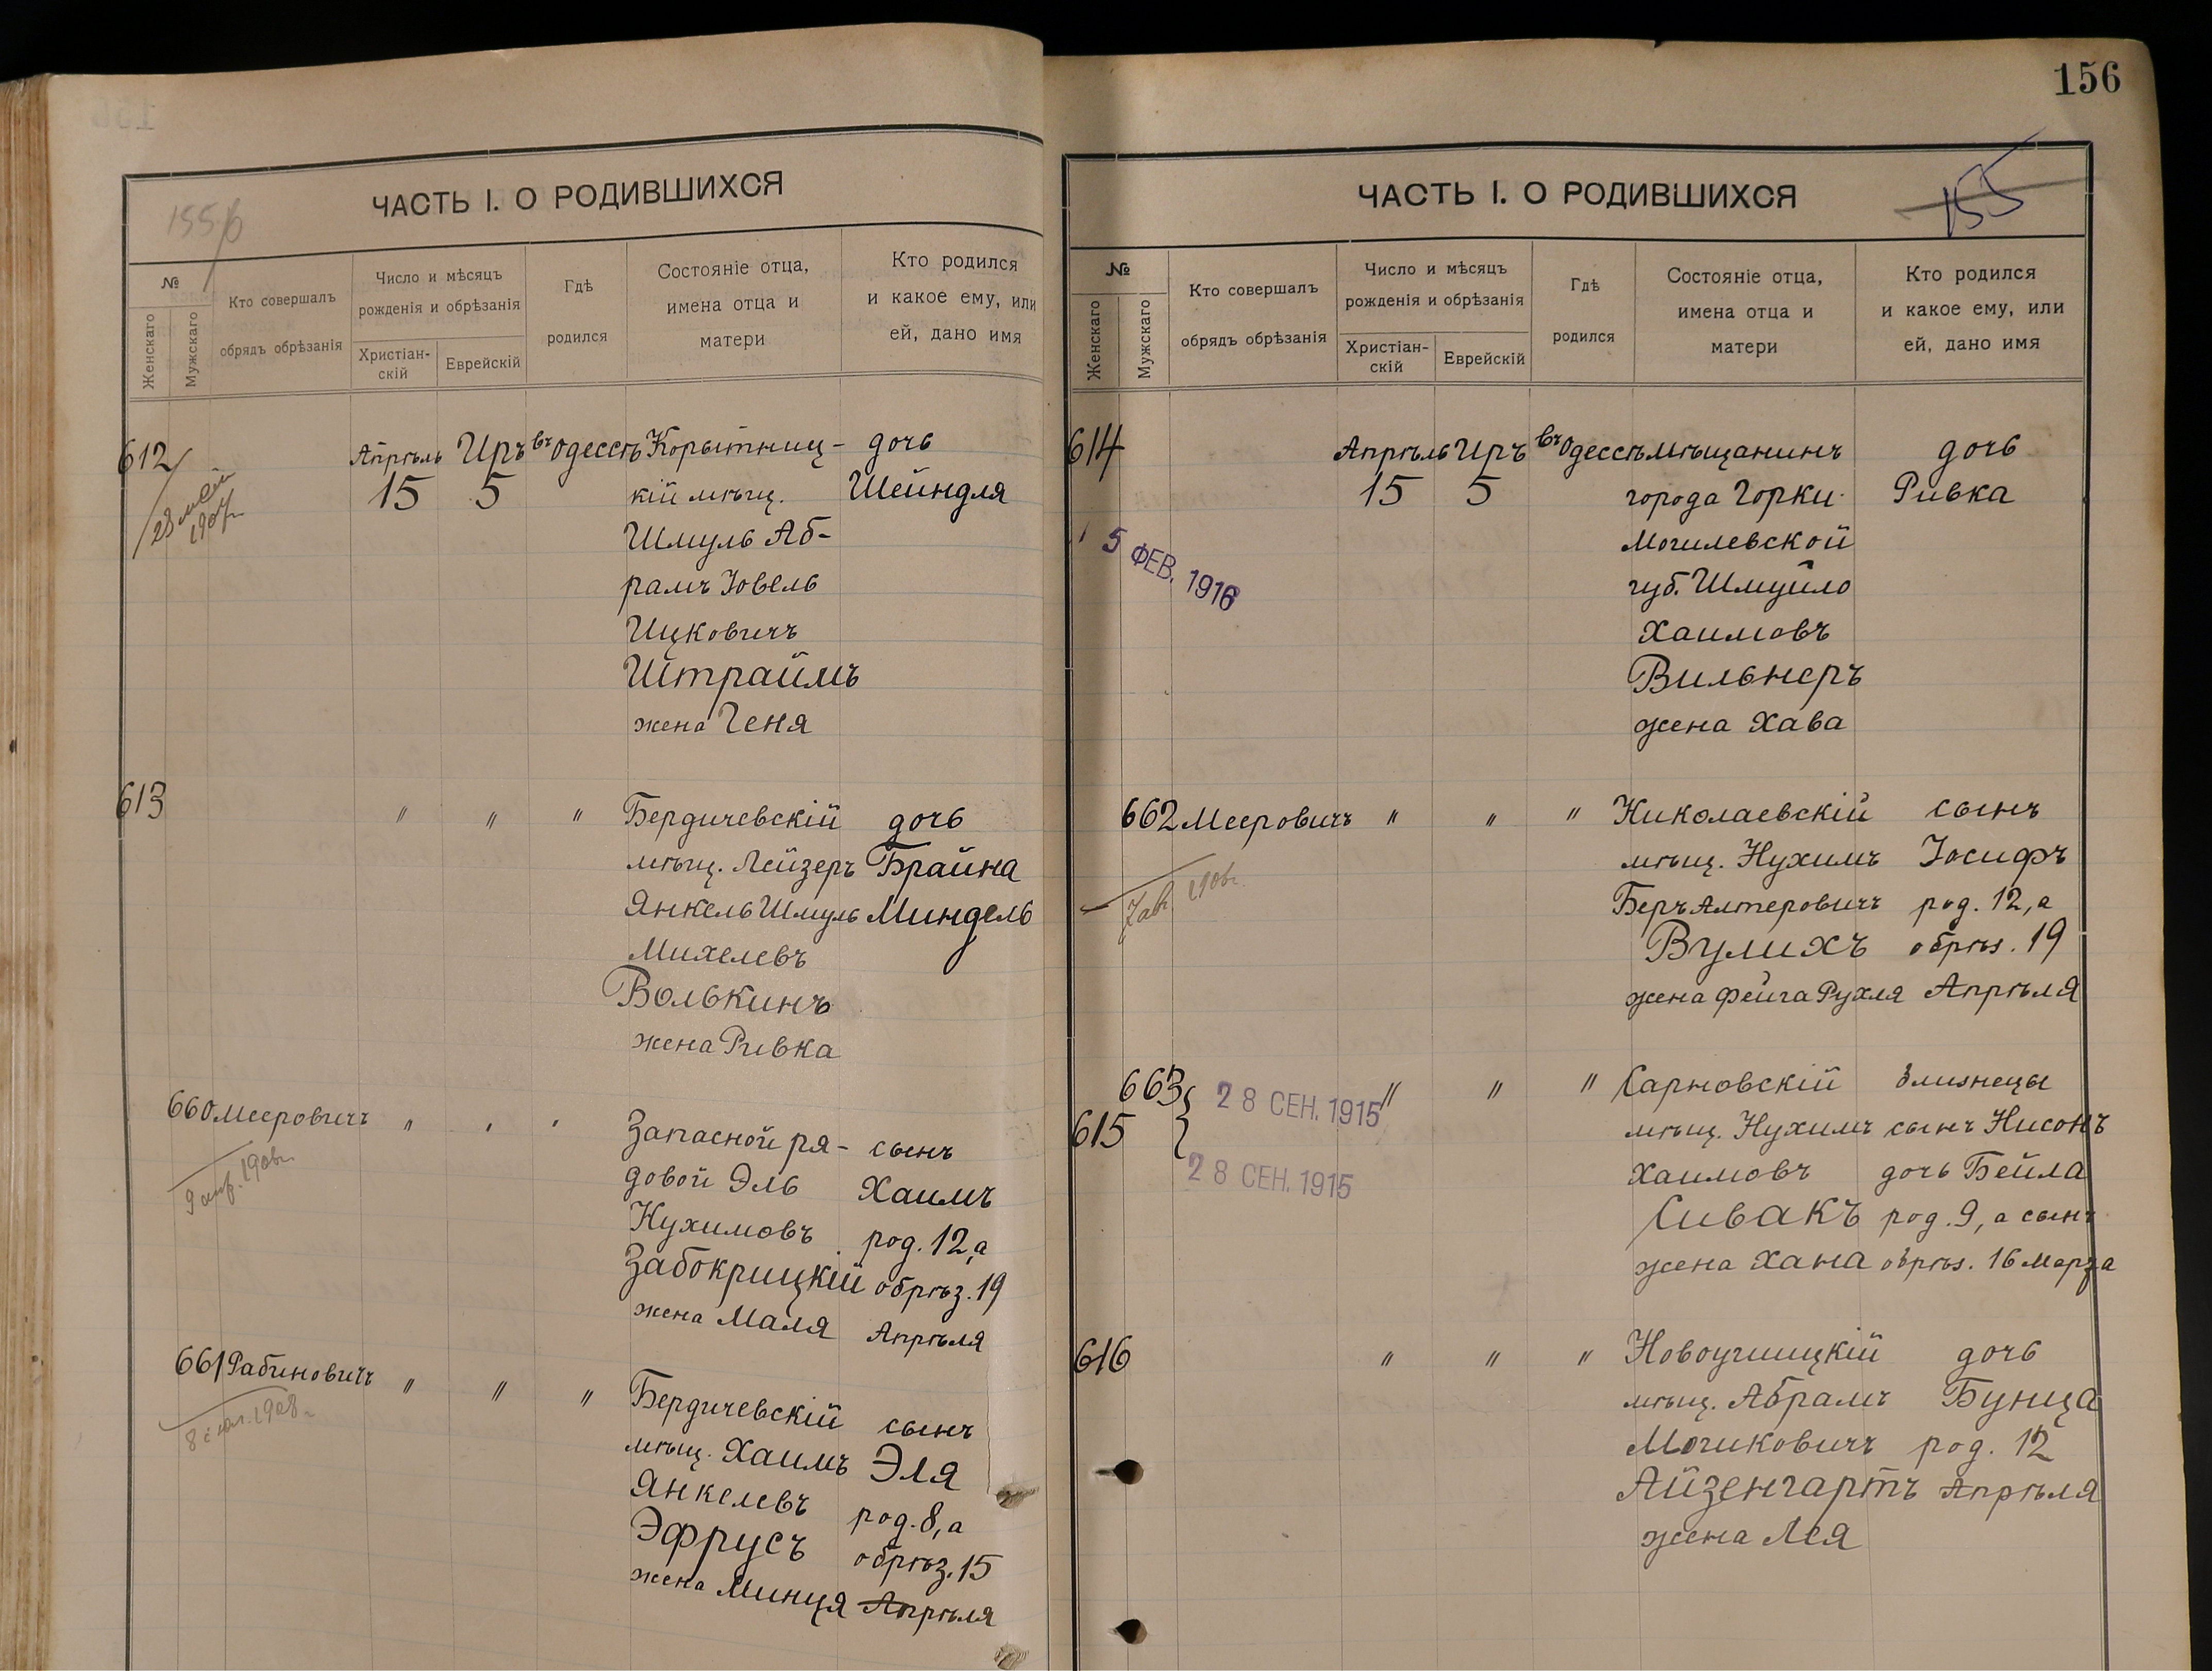 ЧАСТЬ I. О РОДИВШИХСЯ
№
Женскаго
Мужскаго
Кто совершалъ
обрядъ обрѣзанія
Число и мѣсяцъ
рожденія и обрѣзанія
Христіан-
скій
Еврейскій
Гдѣ
родился
Состояніе отца,
имена отца и
матери
Кто родился
и какое ему, или
ей, дано имя
612 Апрѣль Иръ въ Одессѣ Корытниц- дочь
15 5 кій мѣщ. Шейндля
1907
Шмуль Аб-
рамъ Іовель
Ицковичъ
Штраймъ
жена Геня
613 " " " Бердичевскій дочь
мѣщ. Лейзеръ Брайна
Янкель Шмуль Миндель
Михелевъ
Волькинъ
жена Ривка
660 Мееровичъ " " " Запасной ря- сынъ
довой Эль Хаимъ
Нухимовъ род. 12, а
Забокрицкій обрѣз. 19
жена Маля Апрѣля
661 Рабиновичъ " " " Бердичевскій сынъ
мѣщ. Хаимъ Эля
1908
Янкелевъ род. 8, а
Эфрусъ обрѣз. 15
жена Минця Апрѣля
156
155
ЧАСТЬ I. О РОДИВШИХСЯ
№
Женскаго
Мужскаго
Кто совершалъ
обрядъ обрѣзанія
Число и мѣсяцъ
рожденія и обрѣзанія
Христіан-
скій
Еврейскій
Гдѣ
родился
Состояніе отца,
имена отца и
матери
Кто родился
и какое ему, или
ей, дано имя
614 Апрѣль Иръ въ Одессѣ мѣщанинъ дочь
15 5 города Горки Ривка
5 ФЕВ. 1916
Могилевской
губ. Шмуйло
Хаимовъ
Вильнеръ
жена Хава
662 Мееровичъ " " " Николаевскій сынъ
мѣщ. Нухимъ Іосифъ
Беръ Алтеровичъ род. 12, а
Вулихъ обрѣз. 19
жена Фейга Рухля Апрѣля
663 28 СЕН. 1915 " " " Сарновскій близнецы
615 мѣщ. Нухимъ сынъ Нисонъ
28 СЕН. 1915
Хаимовъ дочь Бейла
Сивакъ род. 9, а сынъ
жена Хана обрѣз. 16 Марта
616 " " " Новоушицкій дочь
мѣщ. Абрамъ Бунца
Мошковичъ род. 12
Айзенгартъ Апрѣля
жена Лея